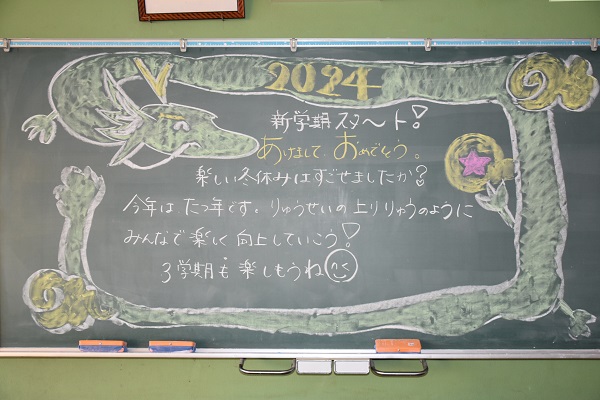 2024
新学期スタート!
あけまして、おめでとう。
楽しい冬休みはすごせましたか?
今年は たつ年です。りゅうせいの上りりゅうのように
みんなで楽しく向上していこう!
3学期も楽しもうね